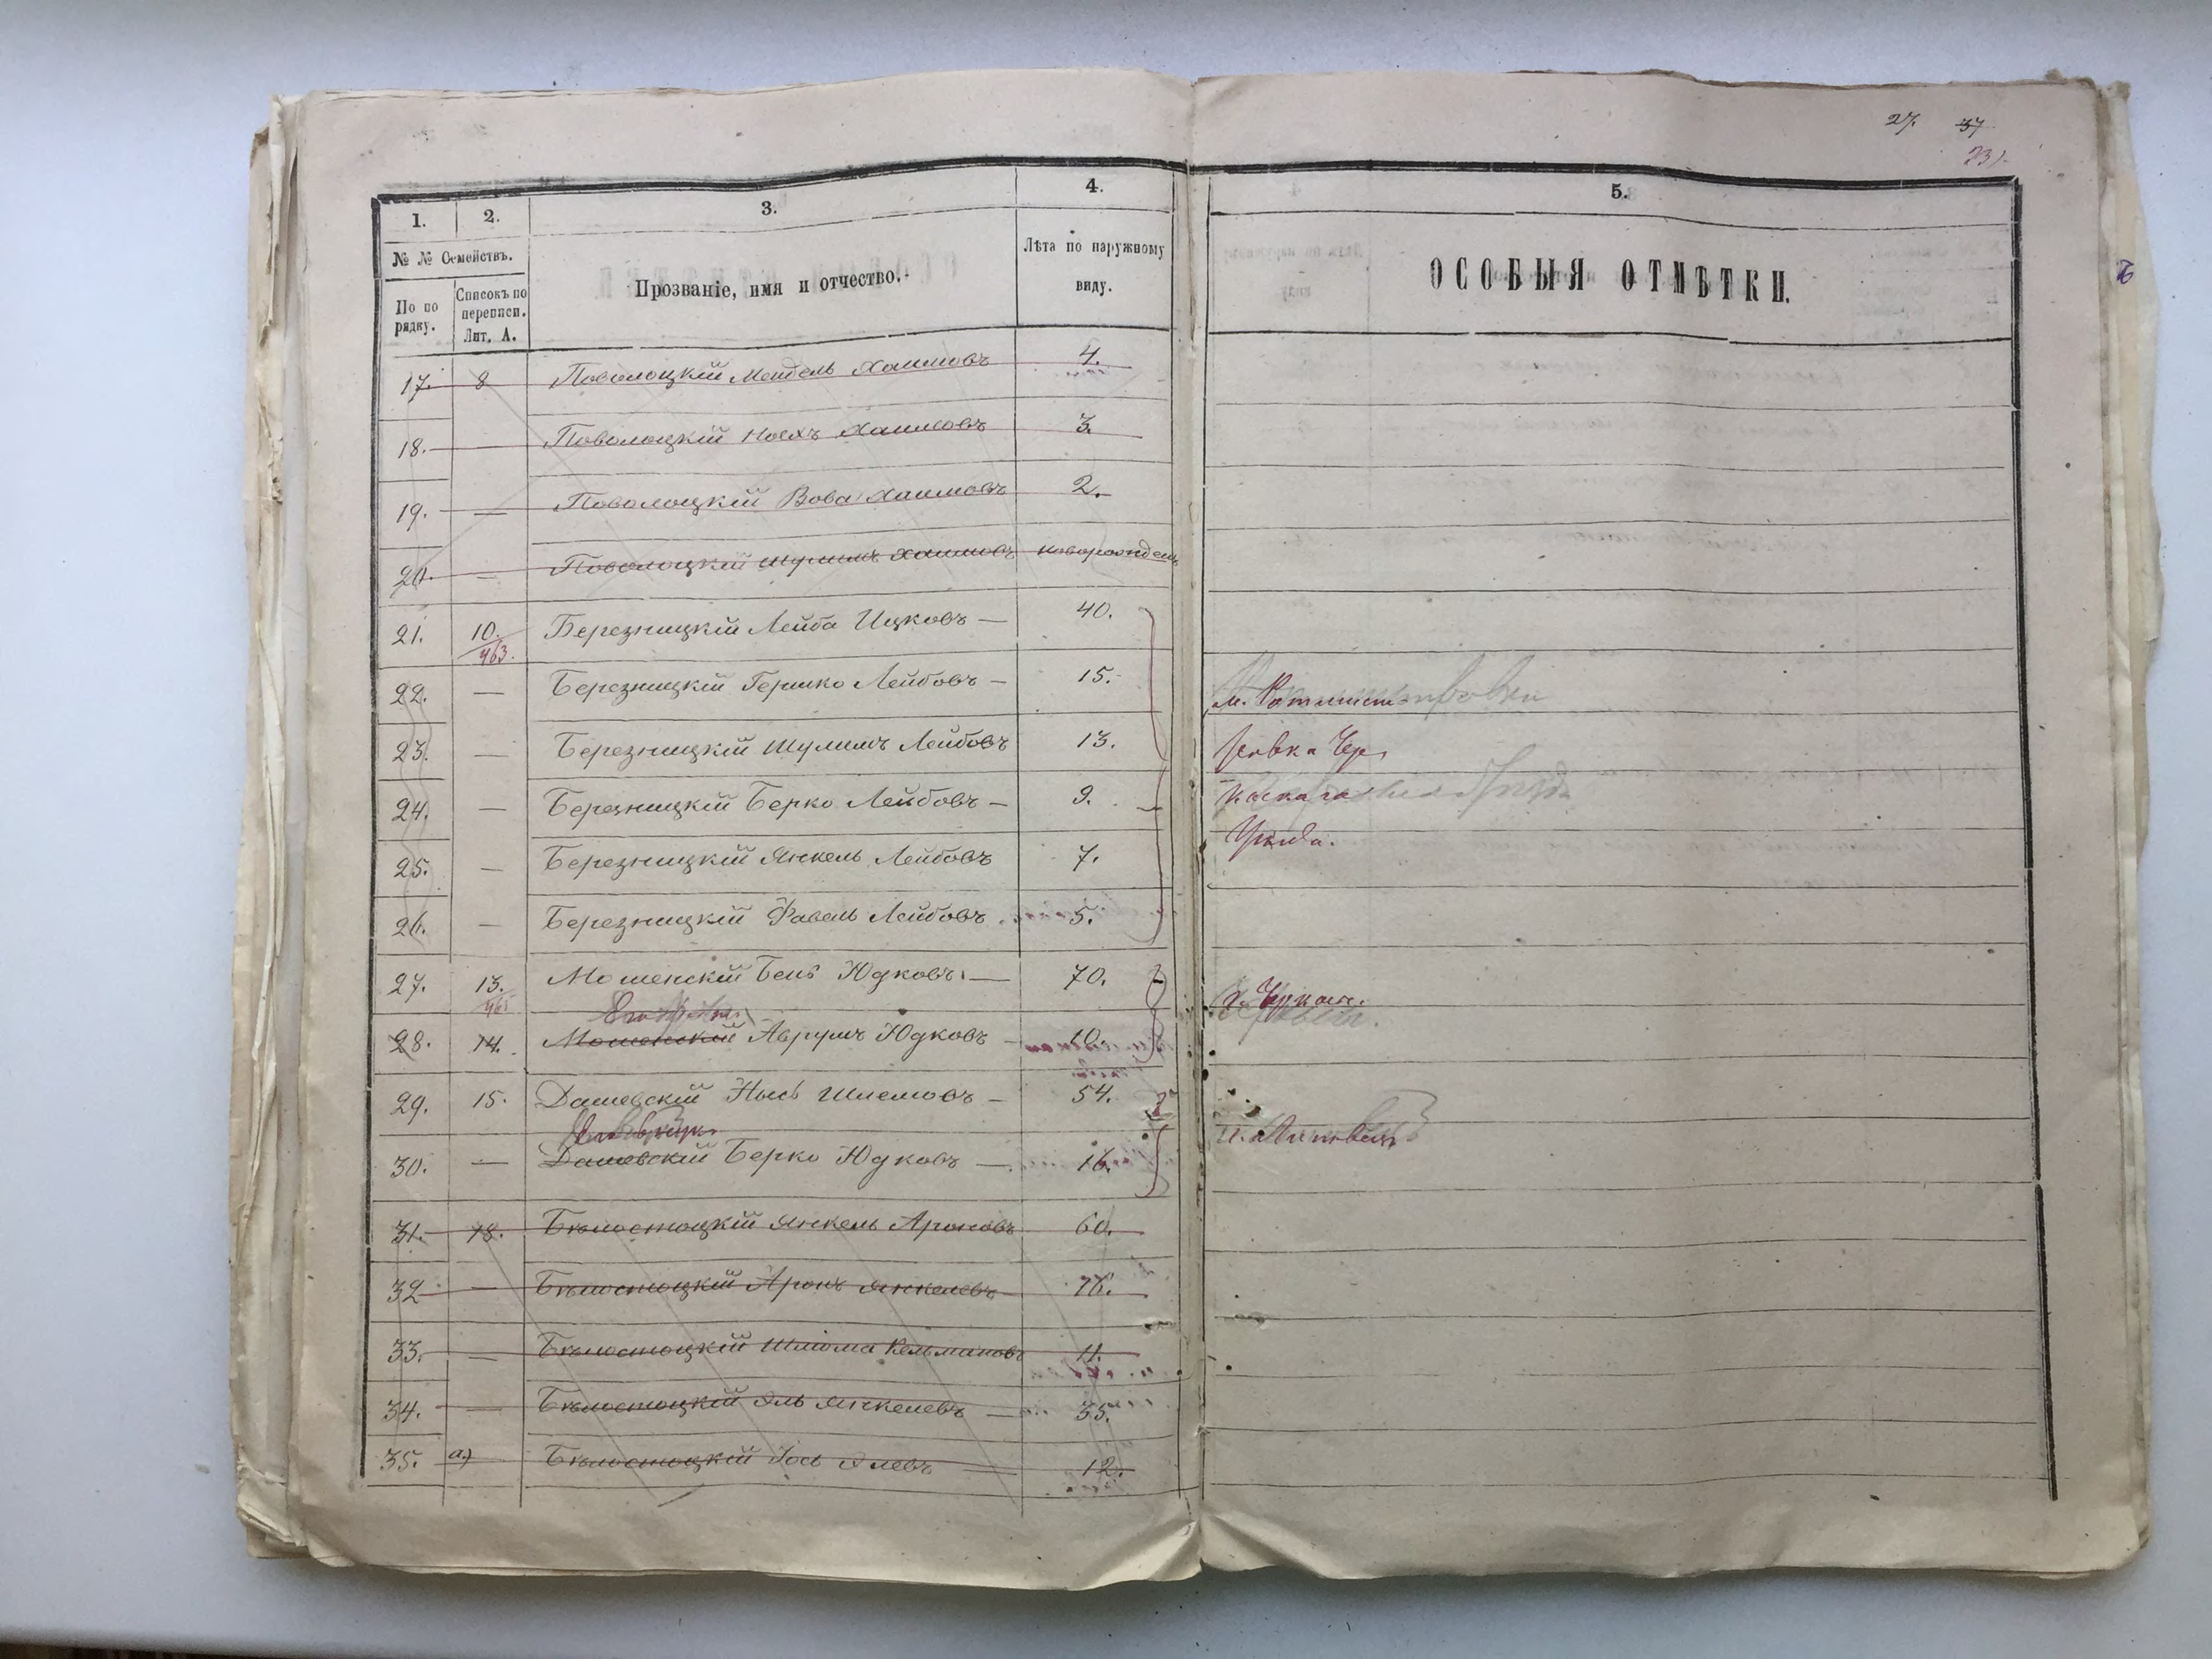 27. 37
1. 2. 3. 4. 5.
№ № Семействъ.
По по рядку.
Списокъ по переписи. Лит. А.
Прозваніе, имя и отчество.
Лѣта по наружному виду.
ОСОБЫЯ ОТМѢТКИ.
17. 8 Поволоцкій Мендель Хаимовъ 4.
18. — Поволоцкій Носхъ Хаимовъ 3.
19. — Поволоцкій Вова Хаимовъ 2.
20. — Поволоцкій Шулимъ Хаимовъ новорожден
21. 10. Березницкій Лейба Ицковъ — 40.
463.
22. — Березницкій Гершко Лейбовъ — 15.
23. — Березницкій Шулимъ Лейбовъ 13.
24. — Березницкій Берко Лейбовъ — 9.
25. — Березницкій Янкель Лейбовъ 7.
26. — Березницкій Фавель Лейбовъ 5.
27. 13. Мошенскій Бень Юдковъ — 70.
465
28. 14. Мошенскій Аврумъ Юдковъ — 10.
29. 15. Дашевскій Нысь Шлемовъ — 54.
30. — Дашевскій Берко Юдковъ — 16.
31. 18. Бѣлостоцкій Янкель Ароновъ 60.
32 — Бѣлостоцкій Аронъ Янкелевъ 16.
33. — Бѣлостоцкій Шлиома Кельмановъ 11.
34. — Бѣлостоцкій Эль Янкелевъ — 35.
35. а) Бѣлостоцкій Іось Элевъ — 12.
уѣзда.